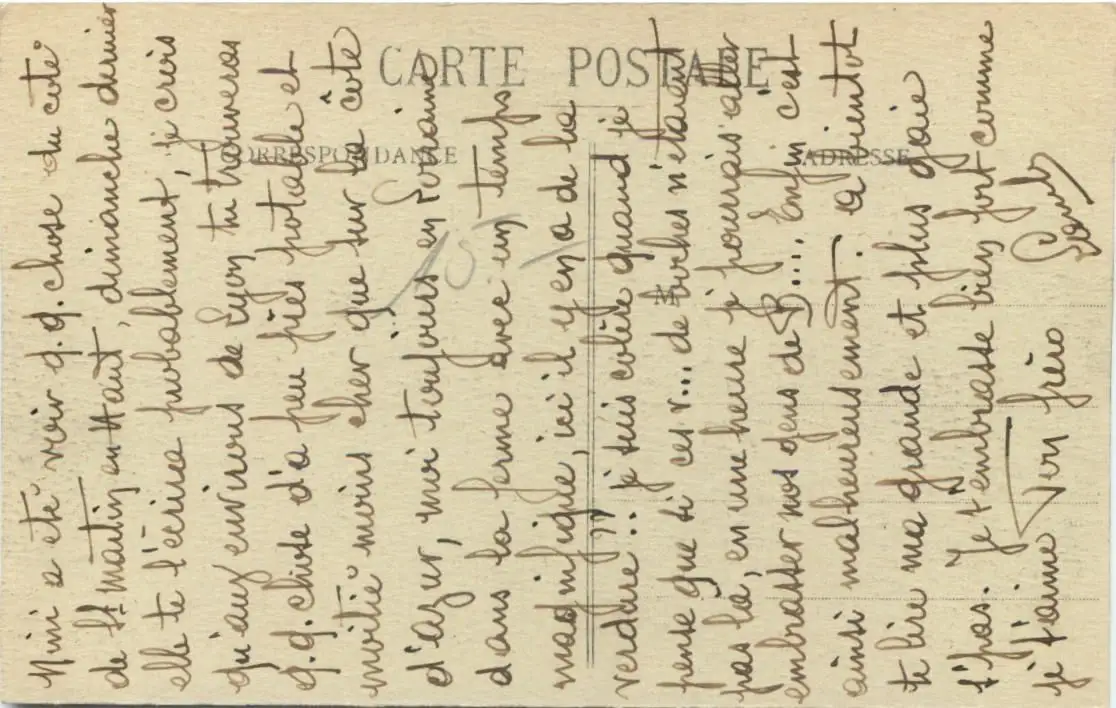 CARTE POSTALE
CORRESPONDANCE
ADRESSE
M
15
Mini a été voir q.q. chose du côté
de St Martin en Haut, dimanche dernier
elle te l'écrira probablement, je crois
qu'aux environs de Lyon tu trouveras
q.q. chose d'a peu près potable et
moitié moins cher que sur la côte
d'azur, moi toujours en Lorraine
dans la ferme avec un temps
magnifique, ici il y en a de la
verdure.. je suis colère quand je
pense que si ces v... de boches n'étaient
pas là, en une heure je pourrais aller
embrasser nos gens de B.... Enfin c'est
ainsi malheureusement. a bientot
te lire ma grande et plus gaie
Je t'embrasse bien fort comme
je t'aime Ton frère